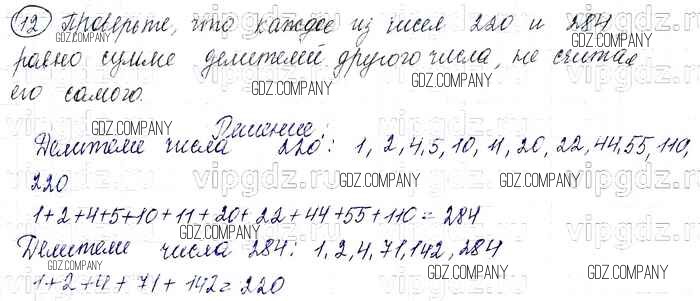 12 Проверьте, что каждое из чисел 220 и 284
равно сумме делителей другого числа, не считая
его самого.
Решение:
Делители числа 220: 1, 2, 4, 5, 10, 11, 20, 22, 44, 55, 110,
220
1+2+4+5+10+11+20+22+44+55+110=284
Делители числа 284: 1, 2, 4, 71, 142, 284
1+2+4+71+142=220
GDZ.COMPANY
vipgdz.ru